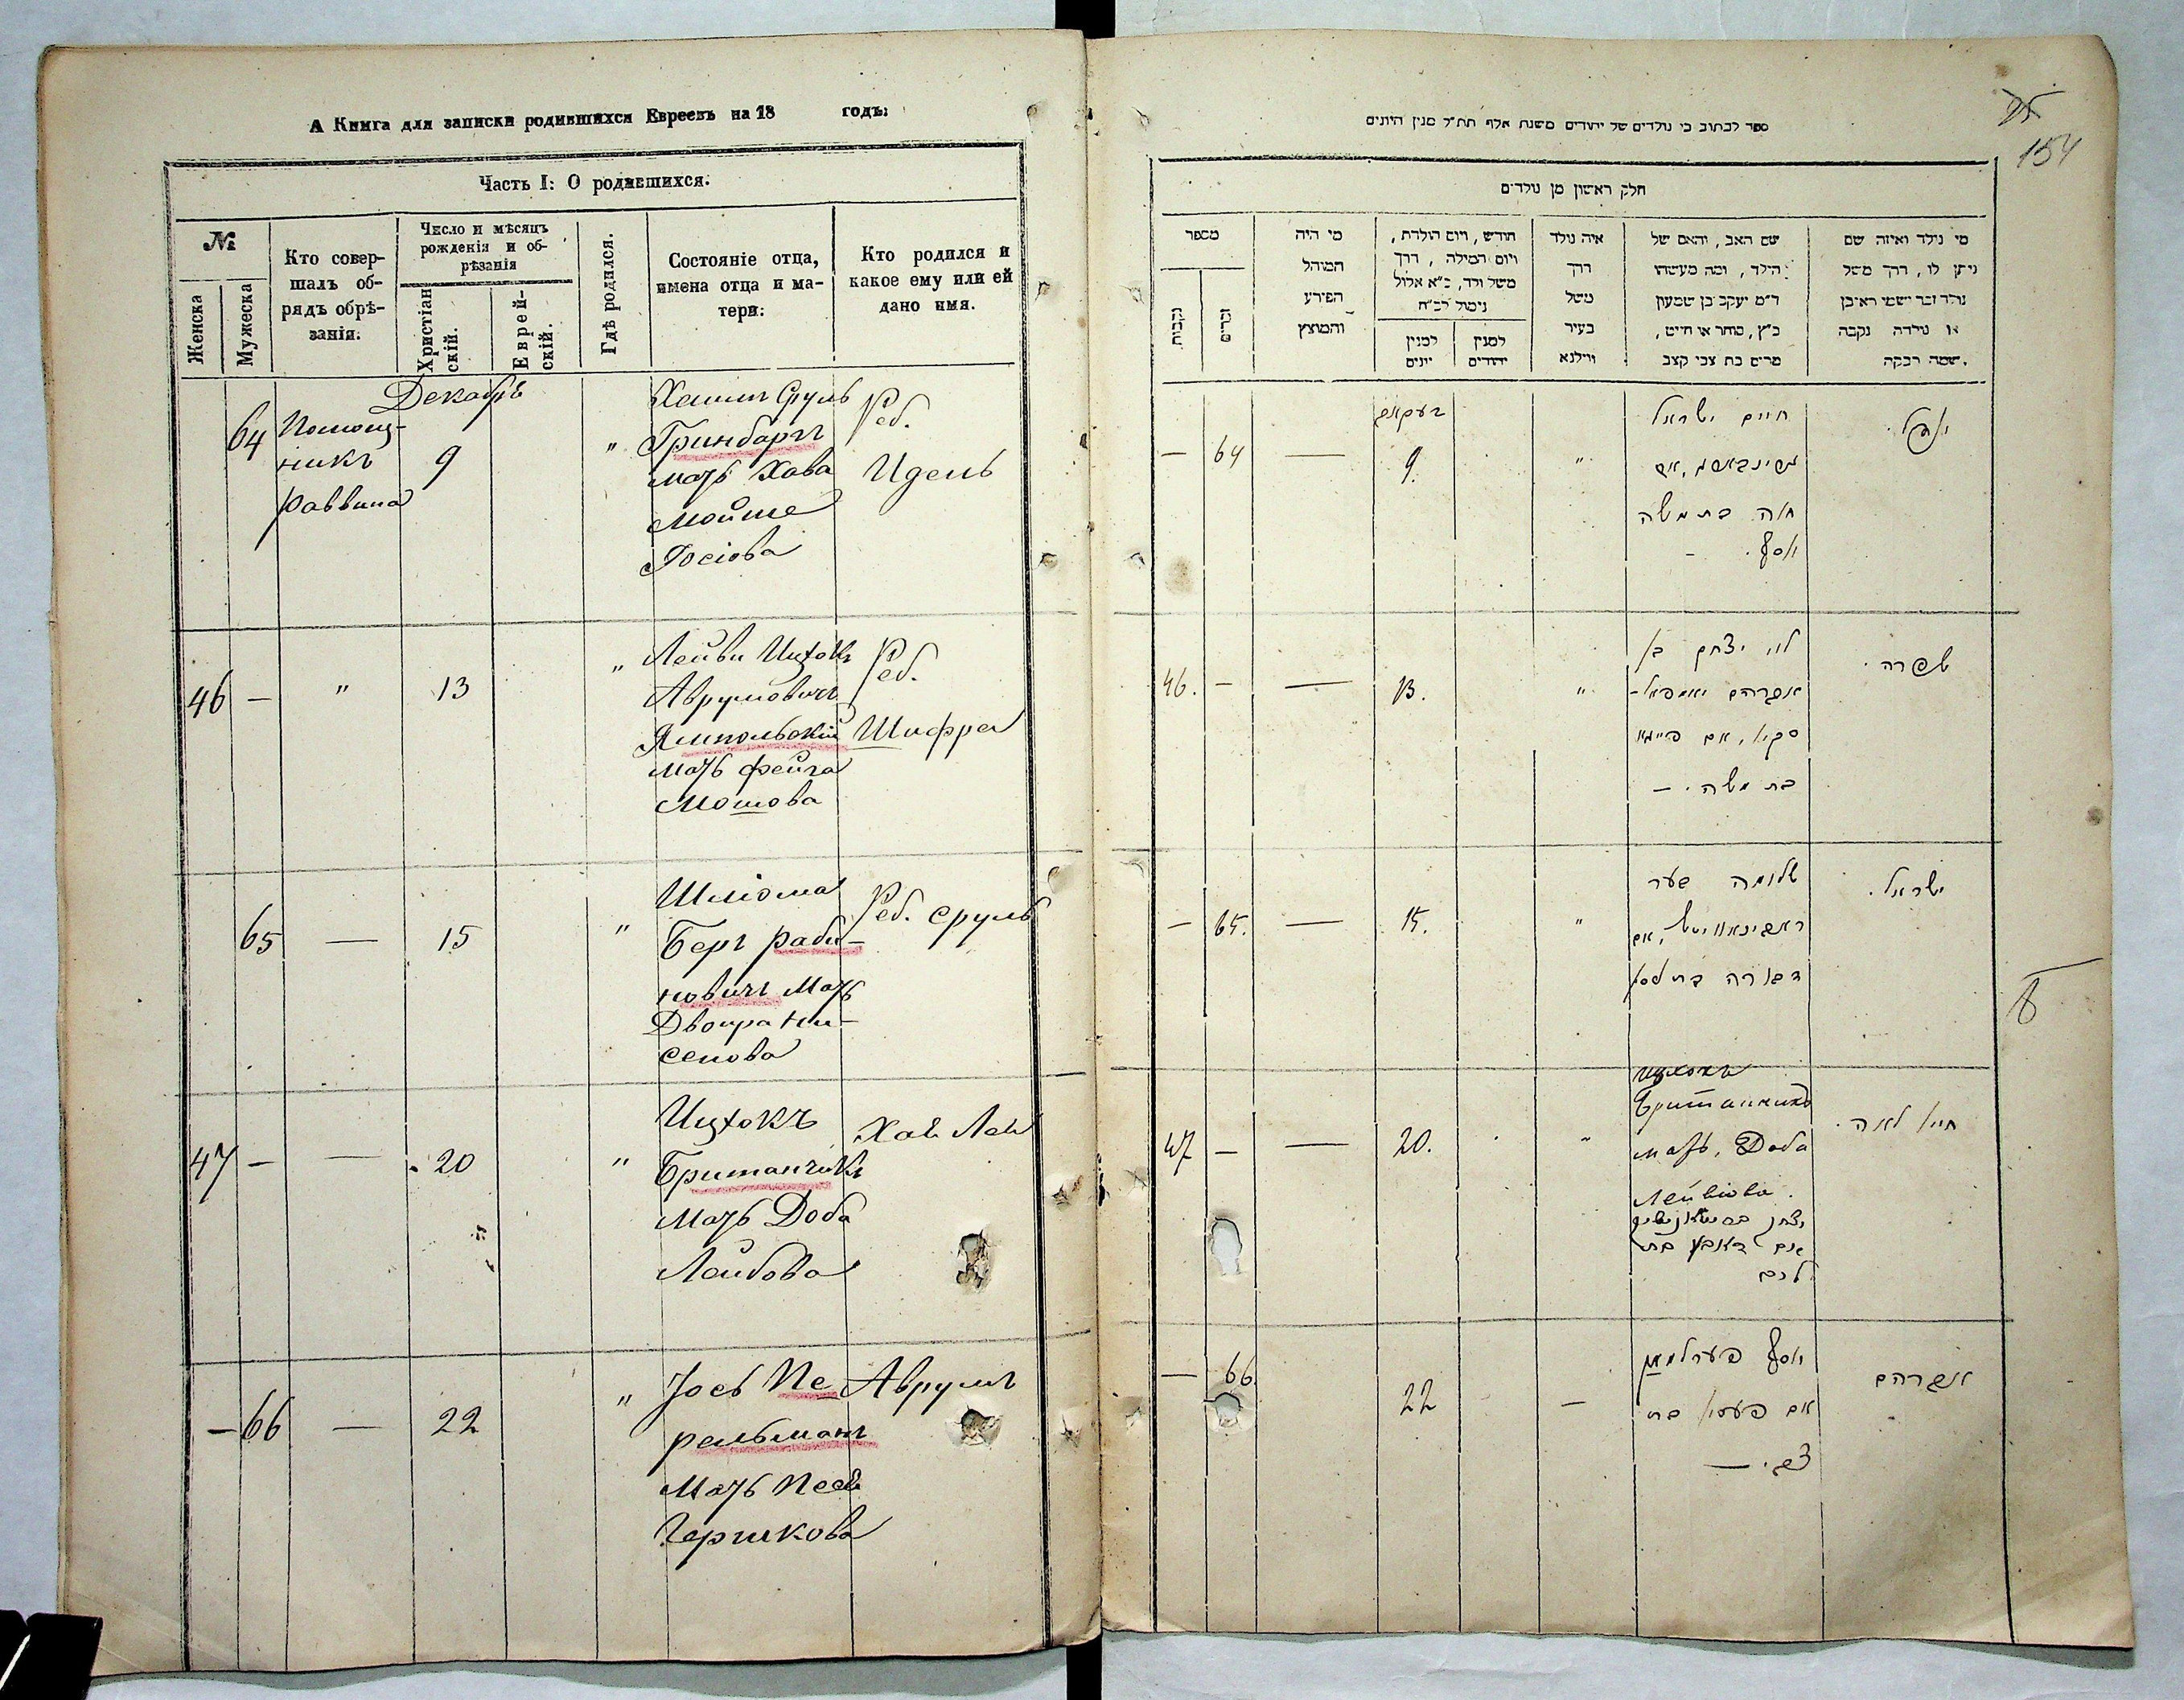 А Книга для записки родившихся Евреевъ на 18 годъ:
Часть I: О родившихся.
№
Женска
Мужеска
Кто совер-
шалъ об-
рядъ обрѣ-
занія.
Число и мѣсяцъ
рожденія и об-
рѣзанія
Христіан
скій.
Еврей-
скій.
Гдѣ родился.
Состояніе отца,
имена отца и ма-
тери:
Кто родился и
какое ему или ей
дано имя.
Декабрь
64
Помощ-
никъ
Раввина
9
"
Хаимъ Сруль
Гринбаргъ
мать Хава
Мойше
Іосіова
Реб.
Идель
46 —
"
13
"
Лейви Ицхокъ
Аврумовичъ
Ямпольскій
мать Фейга
Мошова
Реб.
Шифра
65
—
15
"
Шліома
Беръ Раби-
новичъ мать
Двойра Ни-
сенова
Реб. Сруль
47 —
—
20
"
Ицхокъ
Британчикъ
Мать Доба
Лейбова
Хая Лея
— 66
—
22
"
Іосъ Пе
рельманъ
Мать Песя
Гершкова
Аврумъ
154
ספר לכתוב בו נולדים של יהודים משנת אלף תת״ל מנין היונים
חלק ראשון מן נולדים
מספר
נקבות
זכרים
מי היה
המוהל
הפורע
והמוצץ
חודש, ויום הולדת,
ויום המילה, דרך
משל ולד, כ״א אלול
נימול לכ״ח
למנין
יונים
למנין
יהודים
איה נולד
דרך
משל
בעיר
ווילנא
שם האב, והאם של
הילד, ומה מעשהו
ד״מ יעקב בן שמעון
כ״ץ, סוחר או חייט,
מרים בת צבי קצב
מי נולד ואיזה שם
ניתן לו, דרך משל
נולד זכר ושמו ראובן
או נולדה נקבה
שמה רבקה.
— 64
—
9.
"
חיים ישראל
חוה בת משה
יוסף. -
46. —
—
13.
"
לוי יצחק בן
אברהם יאמפאל-
סקי, אם פייגא
בת משה. —
שפרה.
— 65.
—
15.
"
שלומה בער
ראבינאוויטש, אם
דבורה בת ניסן
ישראל.
47 —
—
20.
"
Ицхокъ
Британчикъ
мать, Доба
Лейвіова.
חיה לאה.
— 66.
22
—
יוסף פערלמאן
אם פעסי בת
צבי. —
אברהם